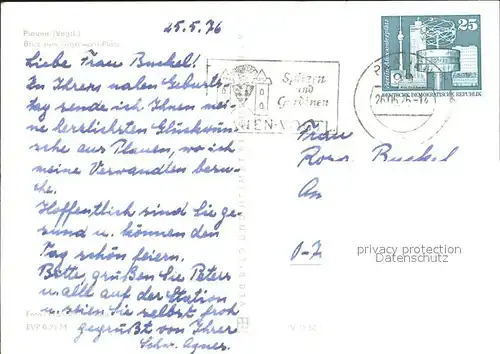 Plauen (Vogtl.)
25.5.76
Liebe Frau Buckel!
Zu Ihrem nahen Geburts-
tag sende ich Ihnen mei-
ne herzlichsten Glückwün-
sche aus Plauen, wo ich
meine Verwandten besu-
che.
Hoffentlich sind Sie ge-
sund u. können den
Tag schön feiern.
Bitte, grüßen Sie Peters
u. alle auf der Station
u. seien Sie selbst froh
gegrüßt von Ihrer
Schw. Agnes.
Spitzen
und
Gardinen
25
DEUTSCHE DEMOKRATISCHE REPUBLIK
Frau
Rosa Buckel
privacy protection
Datenschutz